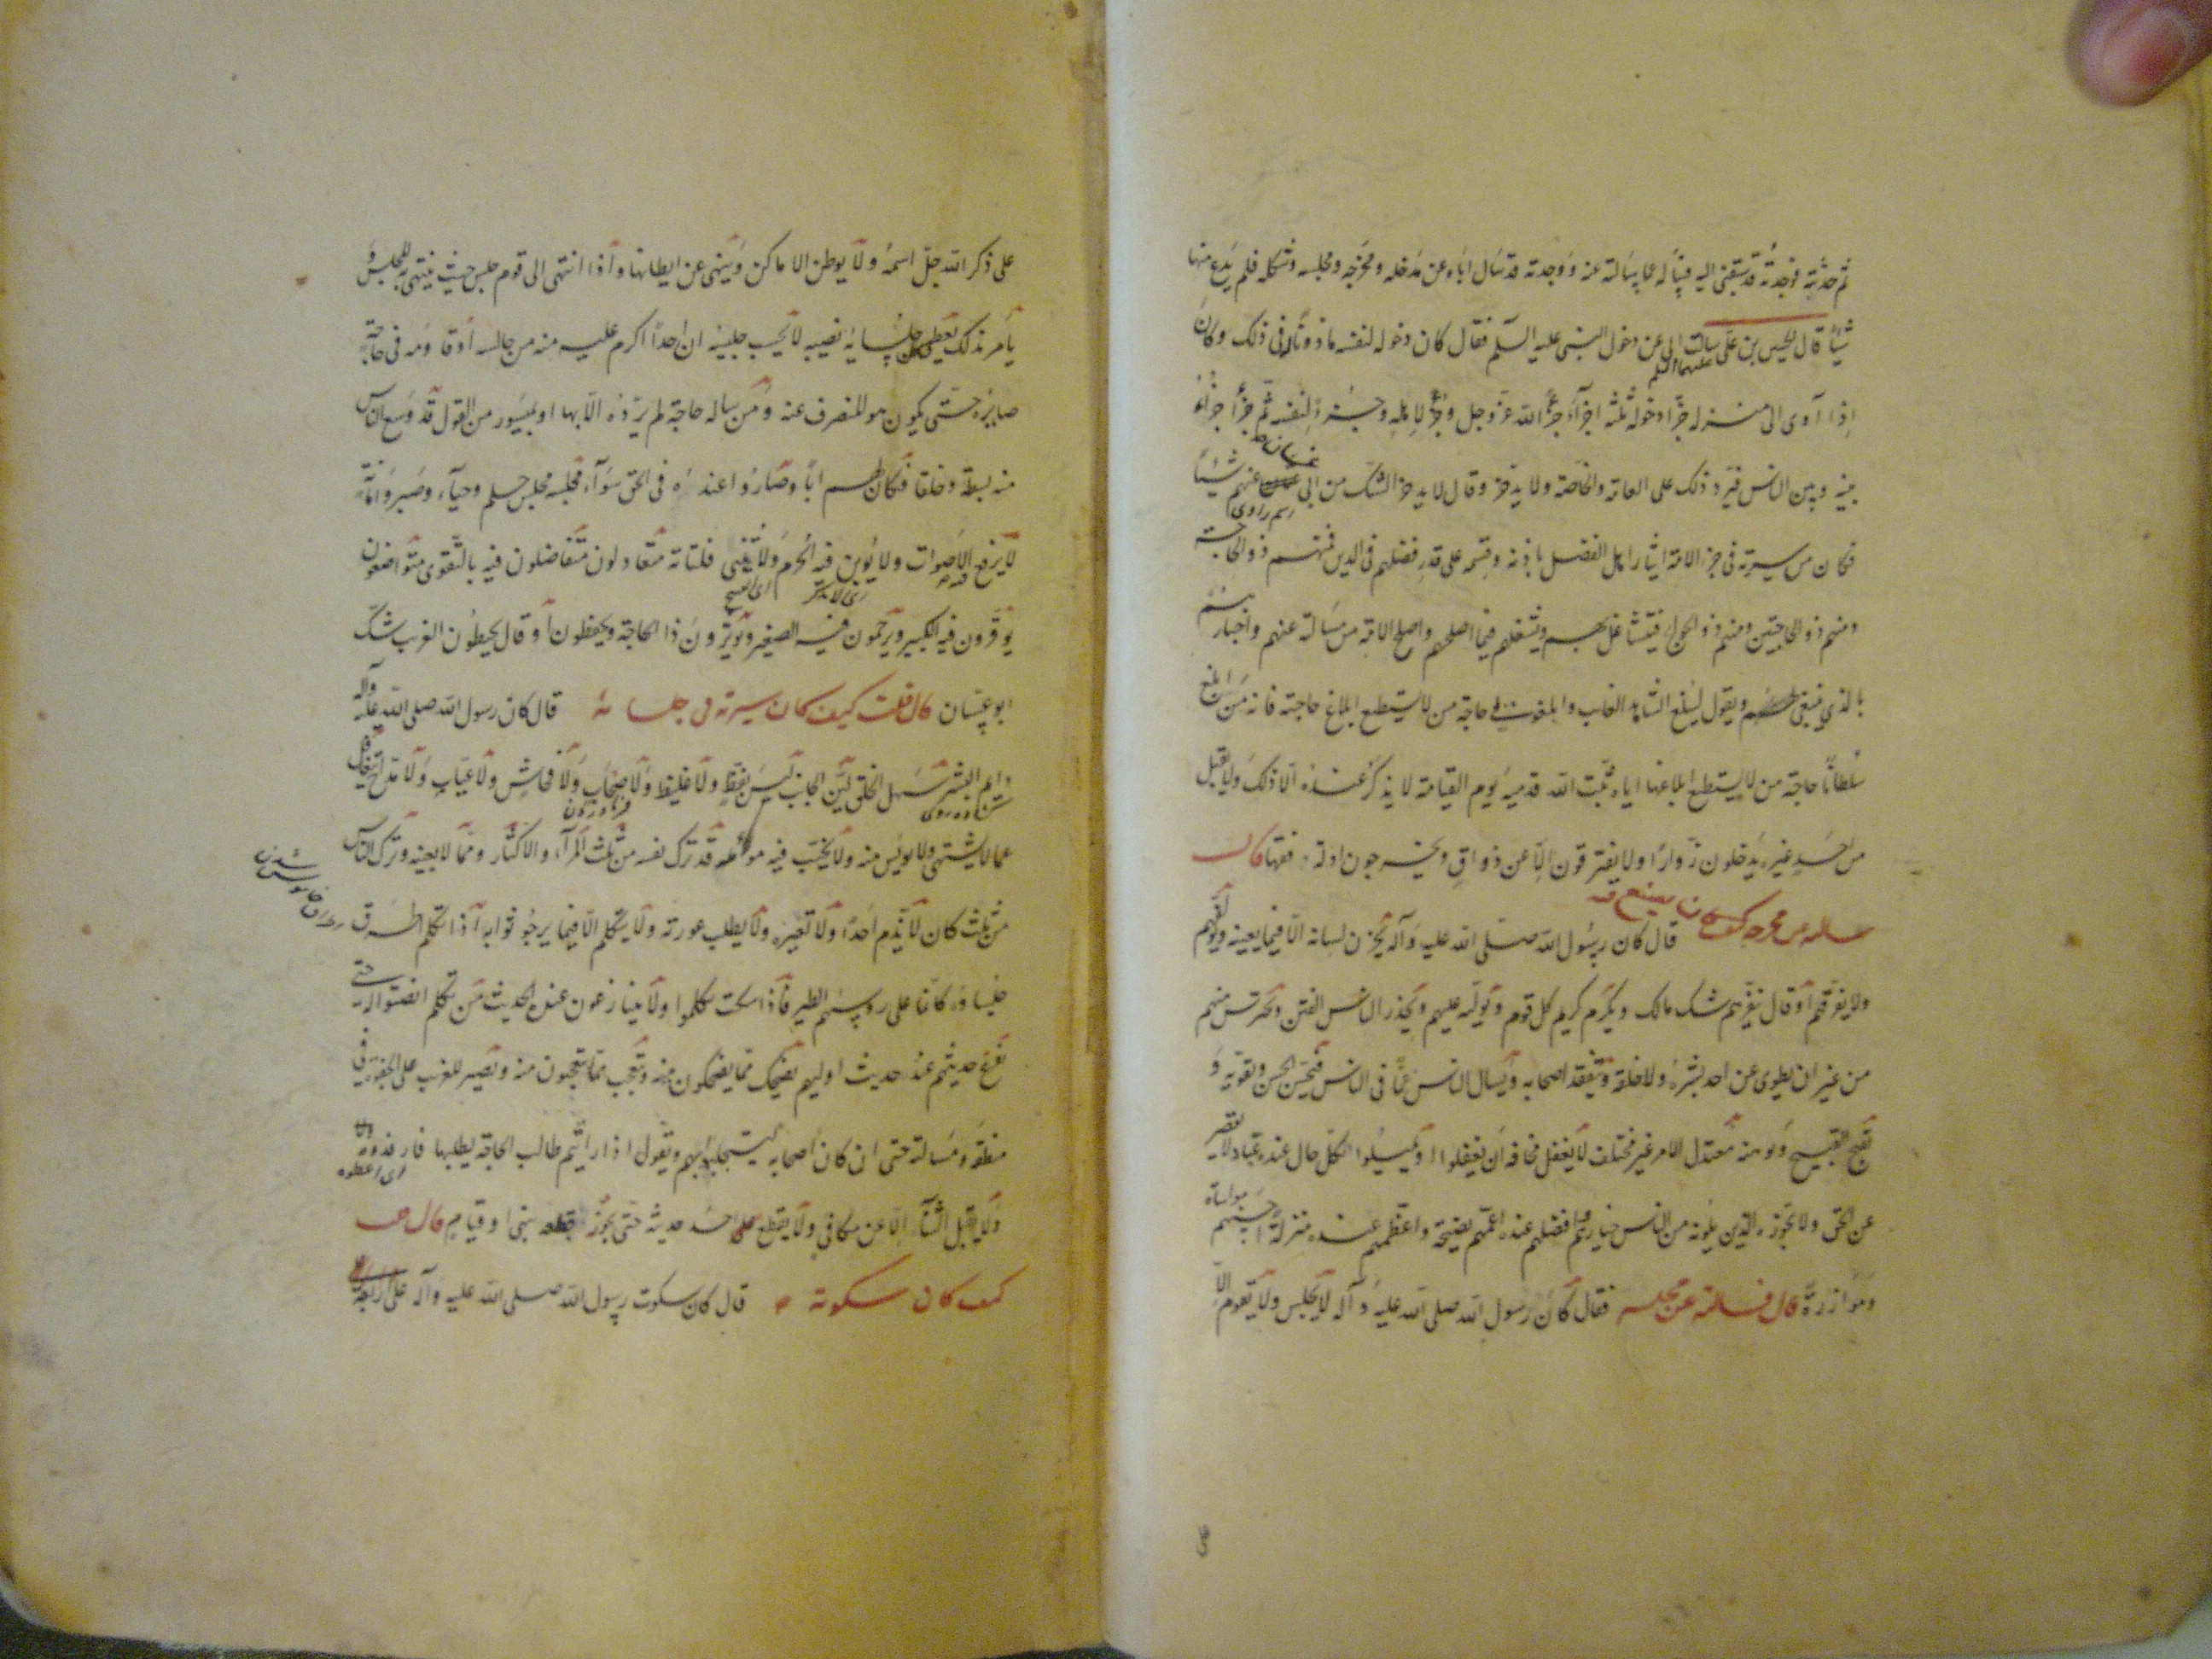 ثم حدثته فوجدته قد سبقني اليه فسأله عما سالته عنه ووجدته قد سال اباه عن مدخله ومخرجه ومجلسه وشكله فلم يدع منها
شيئاً قال الحسين بن علي عليهما السلم سالت ابي عن دخول النبي عليه السلم فقال كان دخوله لنفسه ماذوناً له في ذلك وكان
اذا آوى الى منزله جزّأ دخوله ثلثة اجزآء جزءً الله عزوجل وجزءً لاهله وجزءً لنفسه ثم جزّأ جزأه
بينه وبين الناس فيرد ذلك على العامة والخاصة ولا يدخر وقال لا يدخر الشك من ابي غسان عنهم شيئاً
اسم راوى
فكان من سيرته في جزء الامة ايثار اهل الفضل باذنه وقسمه على قدر فضلهم في الدين فمنهم ذو الحاجة
ومنهم ذو الحاجتين ومنهم ذو الحوائج فيتشاغل بهم ويشغلهم فيما اصلحهم واصلح الامة من مسالته عنهم واخبارهم
بالذي ينبغي ويقول ليبلغ الشاهد الغايب وابلغوني حاجة من لا يستطيع ابلاغ حاجته فانه من ابلغ
سلطاناً حاجة من لا يستطيع ابلاغها اياه ثبت الله قدميه يوم القيامة لا يذكر عنده الا ذلك ولا يقبل
من احد غيره يدخلون زواراً ولا يفترقون الا عن ذواق ويخرجون ادلة فقهآ قال
سالته عن مخرجه كيف كان يصنع فيه قال كان رسول الله صلى الله عليه وآله يخزن لسانه الا فيما يعينه ويؤلفهم
ولا يفرقهم او قال ينفرهم شك مالك ويكرم كريم كل قوم ويوليه عليهم ويحذر الناس الفتن ويحترس منهم
من غير ان يطوى عن احد بشره ولا خلقه ويتفقد اصحابه ويسال الناس عما في الناس فيحسن الحسن ويقويه و
يقبح القبيح ويوهنه معتدل الامر غير مختلف لا يغفل مخافة ان يغفلوا او يميلوا لكل حال عنده عتاد لا يقصر
عن الحق ولا يجوزه الذين يلونه من الناس خيارهم افضلهم عنده اعمهم نصيحة واعظمهم عنده منزلة احسنهم مواساة
وموازرة قال فسالته عن مجلسه فقال كان رسول الله صلى الله عليه وآله لا يجلس ولا يقوم الا
على
على ذكر الله جل اسمه ولا يوطن الاماكن وينهى عن ايطانها واذا انتهى الى قوم جلس حيث ينتهي به المجلس و
يامر بذلك يعطي كل جلسائه نصيبه لا يحسب جليسه ان احداً اكرم عليه منه من جالسه او قاومه في حاجة
صابره حتى يكون هو المنصرف عنه ومن ساله حاجة لم يرده الا بها او بميسور من القول قد وسع الناس
منه بسطه وخلقه فكان لهم اباً وصاروا عنده في الحق سوآء مجلسه مجلس حلم وحيآء وصبر وامانة
لا يرفع فيه الاصوات ولا يوبن فيه الحرم ولا تنثى فلتاته متعادلون متفاضلون فيه بالتقوى متواضعون
يوقرون فيه الكبير ويرحمون فيه الصغير ويوثرون ذا الحاجة ويحفظون او قال يحيطون الغريب شك
ابو غسان قال قلت كيف كان سيرته في جلسائه قال كان رسول الله صلى الله عليه وآله
دايم البشر سهل الخلق لين الجانب ليس بفظ ولا غليظ ولا صخاب ولا فحاش ولا عياب ولا مداح يتغافل
عما لا يشتهى ولا يويس منه ولا يخيب فيه مومله قد ترك نفسه من ثلث المرآء والاكثار ومما لا يعينه وترك الناس
من ثلث كان لا يذم احداً ولا يعيره ولا يطلب عورته ولا يتكلم الا فيما يرجو ثوابه اذا تكلم اطرق
جلساوه كانما على روسهم الطير فاذا سكت تكلموا ولا يتنازعون عنده الحديث من تكلم انصتوا له حتى
يفرغ حديثهم عنده حديث اوليهم يضحك مما يضحكون منه ويتعجب مما يتعجبون منه ويصبر للغريب على الجفوة في
منطقه ومسالته حتى ان كان اصحابه ليستجلبونهم ويقول اذا رايتم طالب الحاجة يطلبها فارفدوه
اى اعطوه
ولا يقبل الثنآء الا عن مكافي ولا يقطع على احد حديثه حتى يجوز فيقطعه بنهي او قيام قال قلت
كيف كان سكوته قال كان سكوت رسول الله صلى الله عليه وآله على اربعة